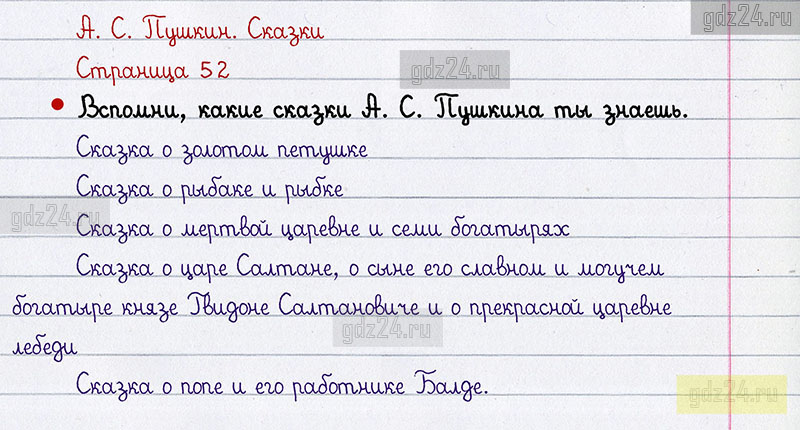 gdz24.ru
А. С. Пушкин. Сказки
Страница 52
gdz24.ru
• Вспомни, какие сказки А. С. Пушкина ты знаешь.
Сказка о золотом петушке
Сказка о рыбаке и рыбке
gdz24.ru
Сказка о мертвой царевне и семи богатырях
Сказка о царе Салтане, о сыне его славном и могучем
богатыре князе Гвидоне Салтановиче и о прекрасной царевне
gdz24.ru
лебеди
Сказка о попе и его работнике Балде.
gdz24.ru